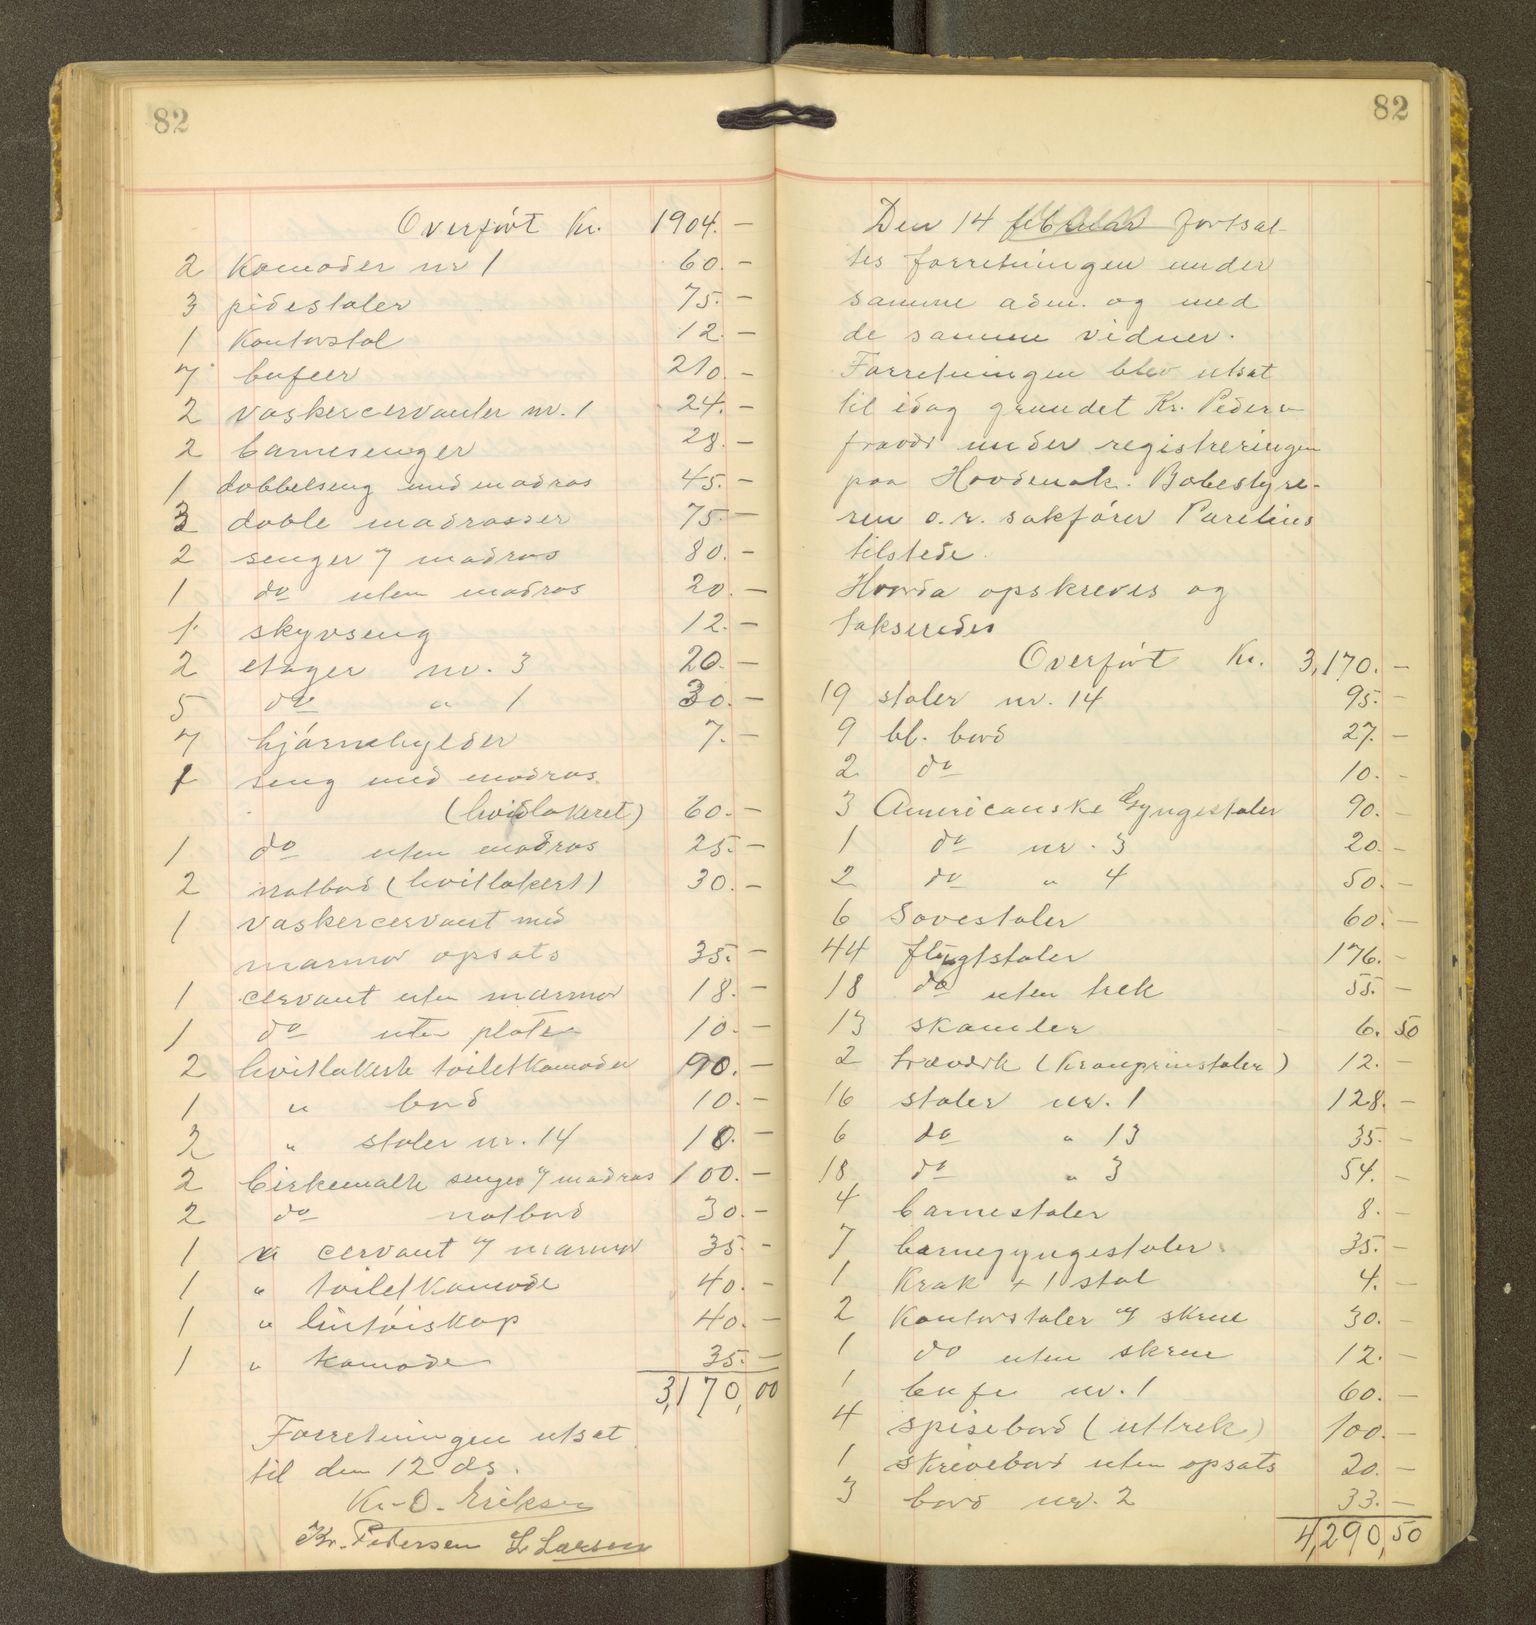 82
Overført Kr. 1904.—
2 Komoder nr 1 60.—
3 pidestaler 75.—
1 Kontorstol 12.—
7 bufeer 210.—
2 vaskercervanter nr. 1 24.—
2 barnesenger 28.—
1 dobbelseng med madras 45.—
3 doble madrasser 75.—
2 senger m/ madras 80.—
1 do uten madras 20.—
1 skyvseng 12.—
2 etager nr. 3 20.—
5 do " 1 30.—
7 hjørnehylder 7.—
1 seng med madras
(hvidlakeret) 60.—
1 do uten madras 25.—
2 natbord (hvitlakert) 30.—
1 vaskercervant med
marmor opsats 35.—
1 cervant uten marmor 18.—
1 do uten plate 10.—
2 hvitlakerte toiletkomoder 90.—
1 " bord 10.—
2 " stoler nr. 14 10.—
2 birkemalte senger m/ madras 100.—
2 do natbord 30.—
1 " cervant m/ marmor 35.—
1 " toiletkomode 40.—
1 " lintøiskap 40.—
1 " komode 35.—
3,170,00
Forretningen utsat
til den 12 ds.
Kr. O. Eriksen
Kr. Petersen L Larsen
82
Den 14 februar fortsat-
tes forretningen under
samme adm. og med
de samme vidner.
Forretningen blev utsat
til idag grundet Kr. Peders
fravær under registreringen
paa Hovdenak. Bobestyre-
ren o.r. sakfører Parelius
tilstede.
Hvorda opskreves og
takseredes
Overført Kr. 3,170.—
19 stoler nr. 14 95.—
9 bl. bord 27.—
2 do 10.—
3 Americanske Gyngestoler 90.—
1 do nr. 3 20.—
2 do " 4 50.—
6 Sovestoler 60.—
44 flugtstoler 176.—
18 do uten trek 55.—
13 skamler 6.50
2 træverk (Kronprinstoler) 12.—
16 stoler nr. 1 128.—
6 do " 13 35.—
18 do " 3 54.—
4 barnestoler 8.—
7 barnegyngestoler 35.—
1 Krak + 1 stol 4.—
2 Kontorstoler m/ skrue 30.—
1 do uten skrue 12.—
1 bufe nr. 1 60.—
4 spisebord (uttrek) 100.—
1 skrivebord uten opsats 20.—
3 bord nr. 2 33.—
4,290,50